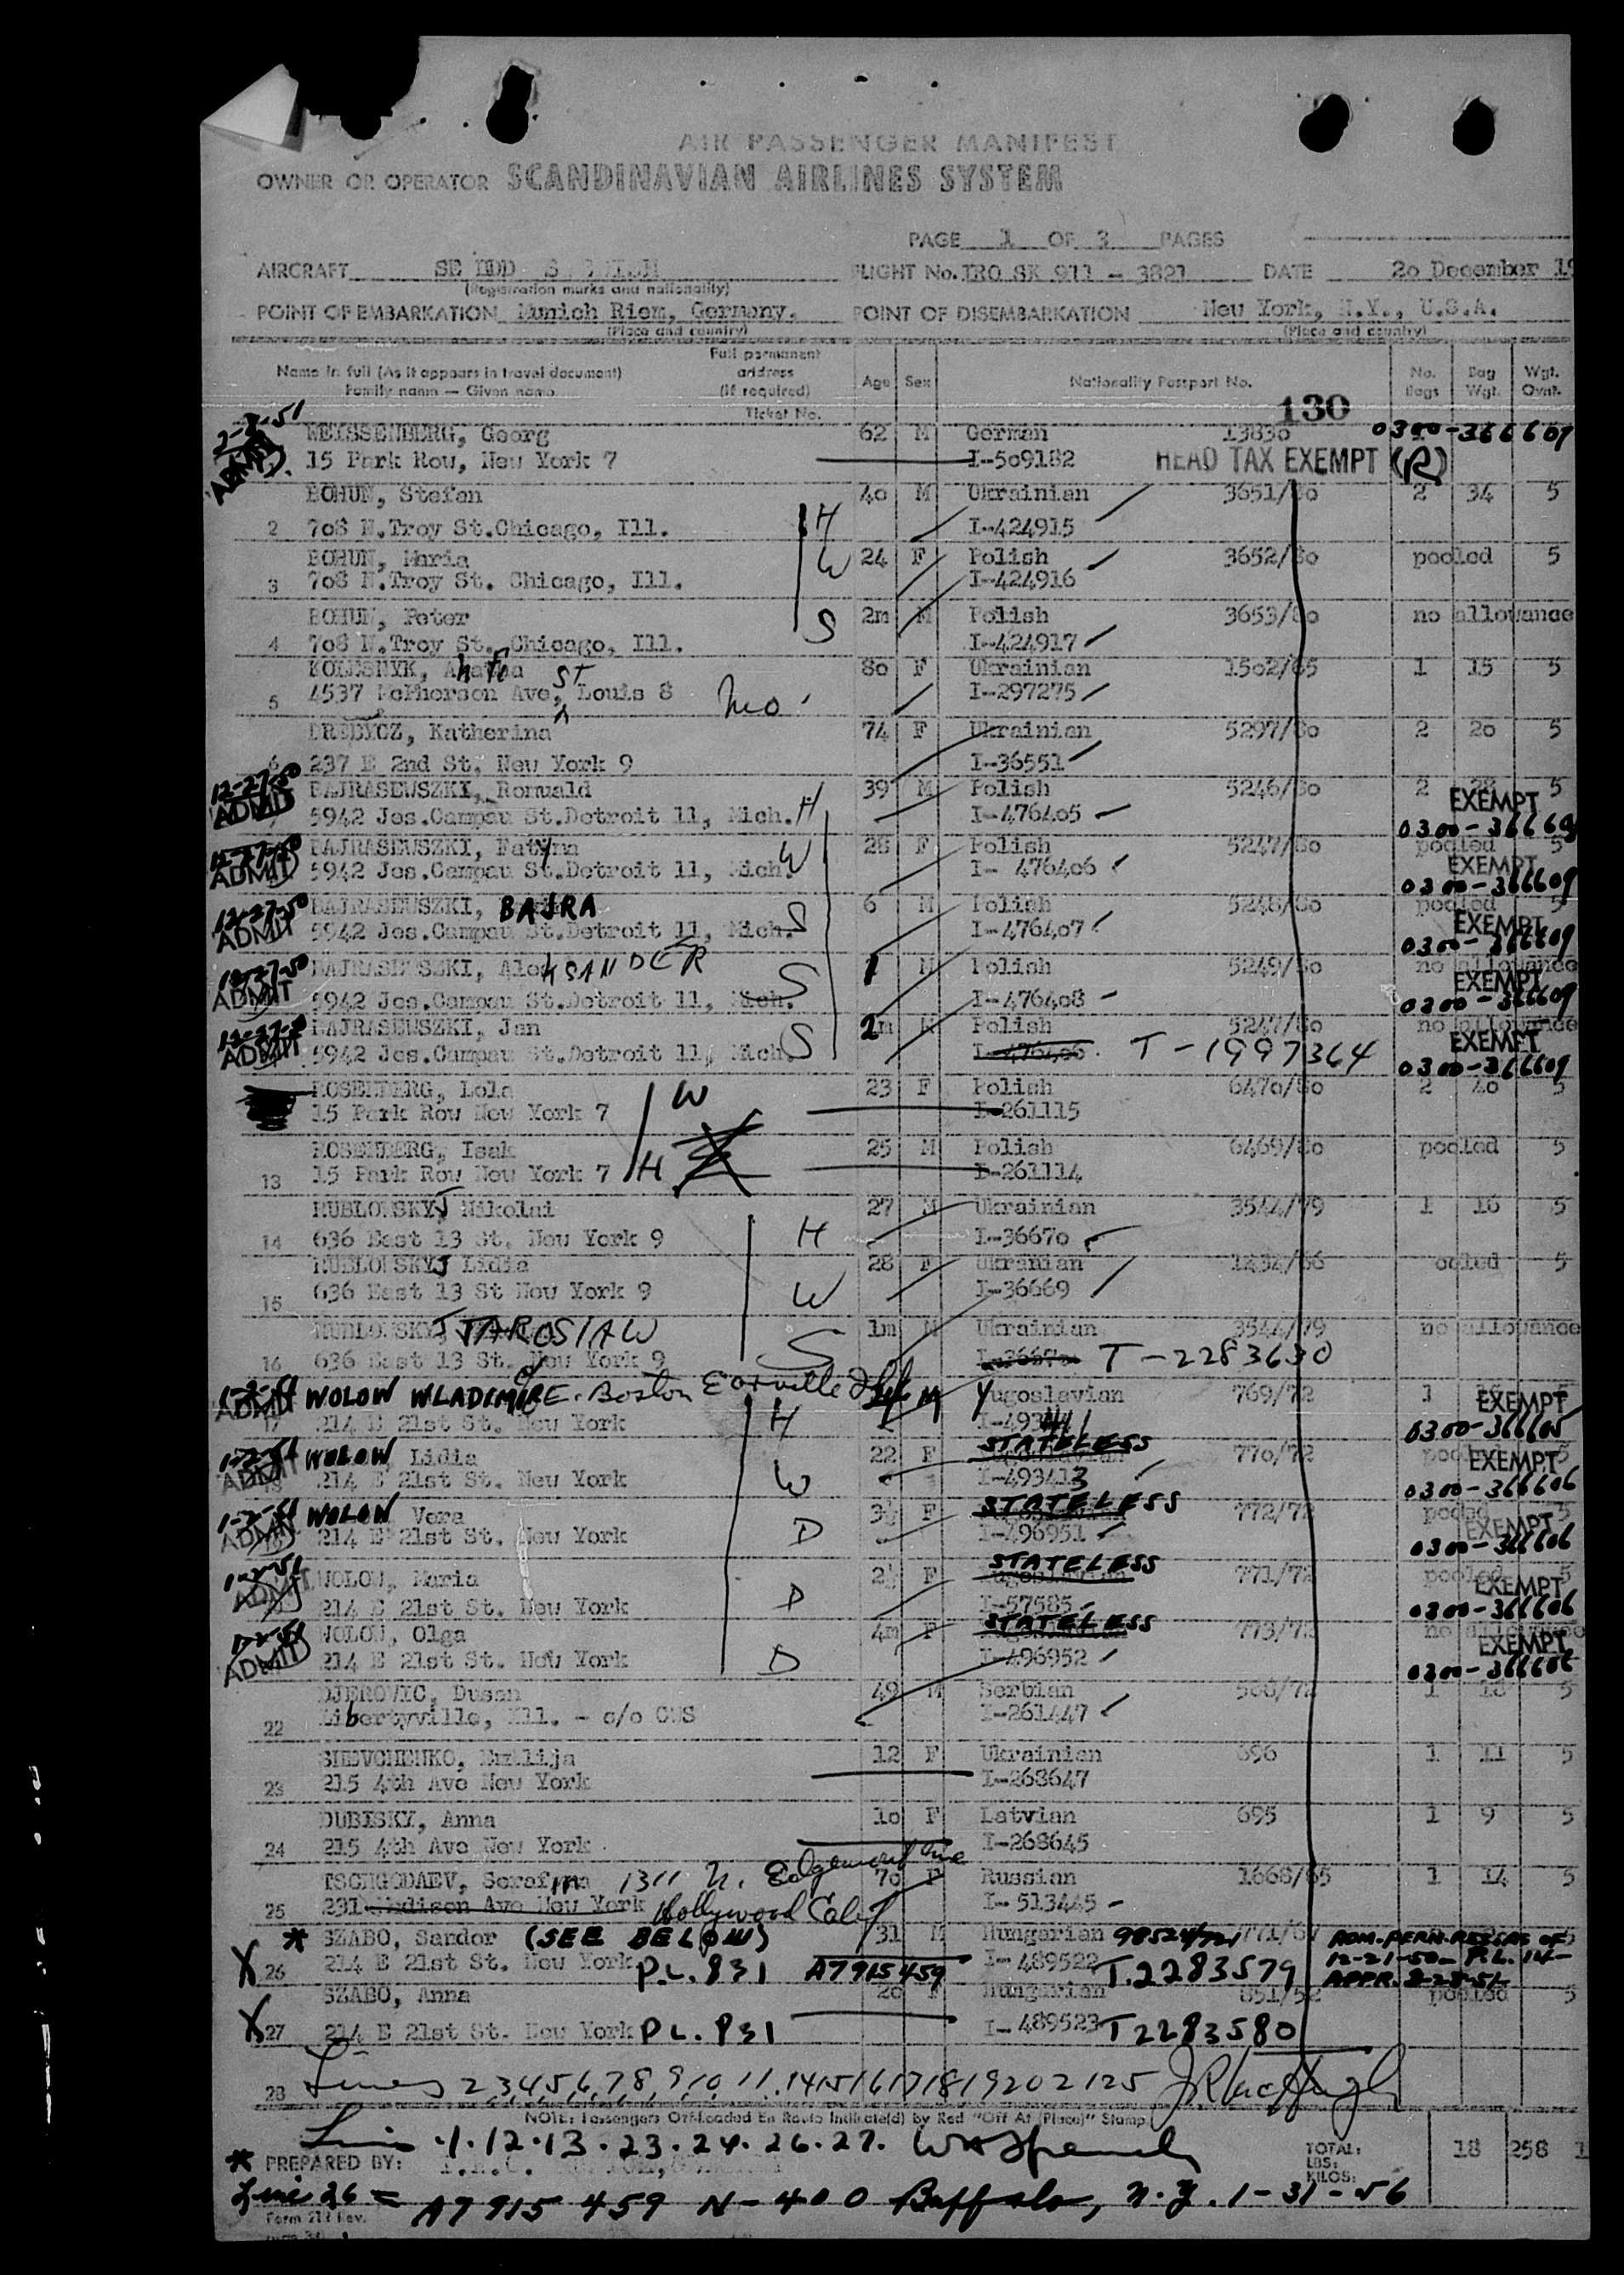 AIR PASSENGER MANIFEST
OWNER OR OPERATOR SCANDINAVIAN AIRLINES SYSTEM
PAGE 1 OF 3 PAGES
AIRCRAFT SE BDD
FLIGHT No. IRO SK 911 - 3821 DATE 20 December 19
(Registration marks and nationality)
POINT OF EMBARKATION Munich Riem, Germany. POINT OF DISEMBARKATION New York, N.Y., U.S.A.
(Place and country) (Place and country)
Name in full (As it appears in travel document) Family name — Given name Full permanent address (if required) Ticket No. Age Sex Nationality Passport No. No. Bags Bag Wgt. Wgt. Ovnt.
130
2-2-51 WEISSENBERG, Georg 62 M German 13830 0300-366607
ADMIT 15 Park Row, New York 7 I-509182 HEAD TAX EXEMPT (R)
BOHUN, Stefan 40 M Ukrainian 3651/80 2 34 5
2 708 N.Troy St.Chicago, Ill. H I-424915
BOHUN, Maria W 24 F Polish 3652/80 pooled 5
3 708 N.Troy St. Chicago, Ill. I-424916
BOHUN, Peter S 2m M Polish 3653/80 no allowance
4 708 N.Troy St. Chicago, Ill. I-424917
KOLESNYK, 80 F Ukrainian 1502/65 1 15 5
5 4537 McPherson Ave, ST Louis 8 Mo. I-297275
Katherina 74 F Ukrainian 5297/80 2 20 5
6 237 E 2nd St. New York 9 I-36551
12-27-50 BAJRASEWSZKI, Romuald 39 M Polish 5246/80 2 28 5 EXEMPT
ADMIT 5942 Jos.Campau St.Detroit 11, Mich. H I-476405 0300-366609
12-27-50 BAJRASEWSZKI, Fatyma W 28 F Polish 5247/80 pooled 5 EXEMPT
ADMIT 5942 Jos.Campau St.Detroit 11, Mich. I- 476406 0300-366609
12-27-50 BAJRASEWSZKI, BAJRA S 6 M Polish 5248/80 pooled 5 EXEMPT
ADMIT 5942 Jos.Campau St.Detroit 11, Mich. I-476407 0300-366609
12-27-50 BAJRASEWSZKI, AleKSANDER S 1 M Polish 5249/80 no allowance EXEMPT
ADMIT 5942 Jos.Campau St.Detroit 11, Mich. I-476408 0300-366609
12-27-50 BAJRASEWSZKI, Jan S 2m M Polish 5247/80 no allowance EXEMPT
ADMIT 5942 Jos.Campau St.Detroit 11, Mich. I-476406 T-1997364 0300-366609
ROSENBERG, Lola W 23 F Polish 6470/80 2 40 5
15 Park Row New York 7 I-261115
ROSENBERG, Isak 25 M Polish 6469/80 pooled 5
13 15 Park Row New York 7 H I-261114
RUBLOWSKYJ Nikolai 27 M Ukrainian 3544/79 1 16 5
14 636 East 13 St. New York 9 H I-36670
RUBLOWSKYJ Lidia 28 F Ukranian 1434/66 ooled 5
15 636 East 13 St New York 9 W I-36669
RUBLOWSKYJ JAROSLAW 1m M Ukrainian 3544/79 no allowance
16 636 East 13 St. New York 9 S I-36670 T-2283630
1-2-51 WOLOW WLADIMIR E. Boston Earville M Yugoslavian 769/72 1 EXEMPT
ADMIT 17 214 E 21st St. New York H 0300-366605
1-2-51 WOLOW Lidia 22 F STATELESS 770/72 pooled 5 EXEMPT
ADMIT 18 214 E 21st St. New York W I-493413 0300-366606
1-2-51 WOLOW Vera 3½ F STATELESS 772/72 pooled 5 EXEMPT
ADMIT 214 E 21st St. New York D I-496951 0300-366606
1-2-51 WOLOW, Maria 2½ F STATELESS 771/72 pooled 5 EXEMPT
ADMIT 214 E 21st St. New York D I-57585 0300-366606
1-2-51 WOLOW, Olga 4m F STATELESS 773/72 no allowance EXEMPT
ADMIT 214 E 21st St. New York D I-496952 0300-366606
DJEROVIC, Dusan 49 M Serbian 568/72 1 18 5
22 Libertyville, Ill. - c/o CWS I-261447
SHEVCHENKO, 12 F Ukrainian 696 1 11 5
23 215 4th Ave New York I-268647
DUBISKY, Anna 10 F Latvian 695 1 9 5
24 215 4th Ave New York I-268645
TSCHGODAEV, Serafima 1311 N. Edgemont Ave 70 F Russian 1668/65 1 14 5
25 231 Madison Ave New York Hollywood Calif I- 513445
* SZABO, Sandor (SEE BELOW) 31 M Hungarian ADM. PERM. RES. AS OF
X 26 214 E 21st St. New York P.L. 831 A7915459 I- 489522 T.2283579 12-21-50 P.L. 14- APPR. 2-28-51
SZABO, Anna 20 F Hungarian 851/52 pooled 5
X 27 214 E 21st St. New York P.L. 831 I- 489523 T2283580
28 Lines 2 3 4 5 6 7 8 9 10 11 14 15 16 17 18 19 20 21 25
NOTE: Passengers Off-Loaded En Route Indicate(d) by Red "Off At (Place)" Stamp
Lines 1.12.13.23.24.26.27.
* PREPARED BY: TOTAL: LBS: KILOS: 18 258 1
Line 26 = A7 915 459 N-400 Buffalo, N.Y. 1-31-56